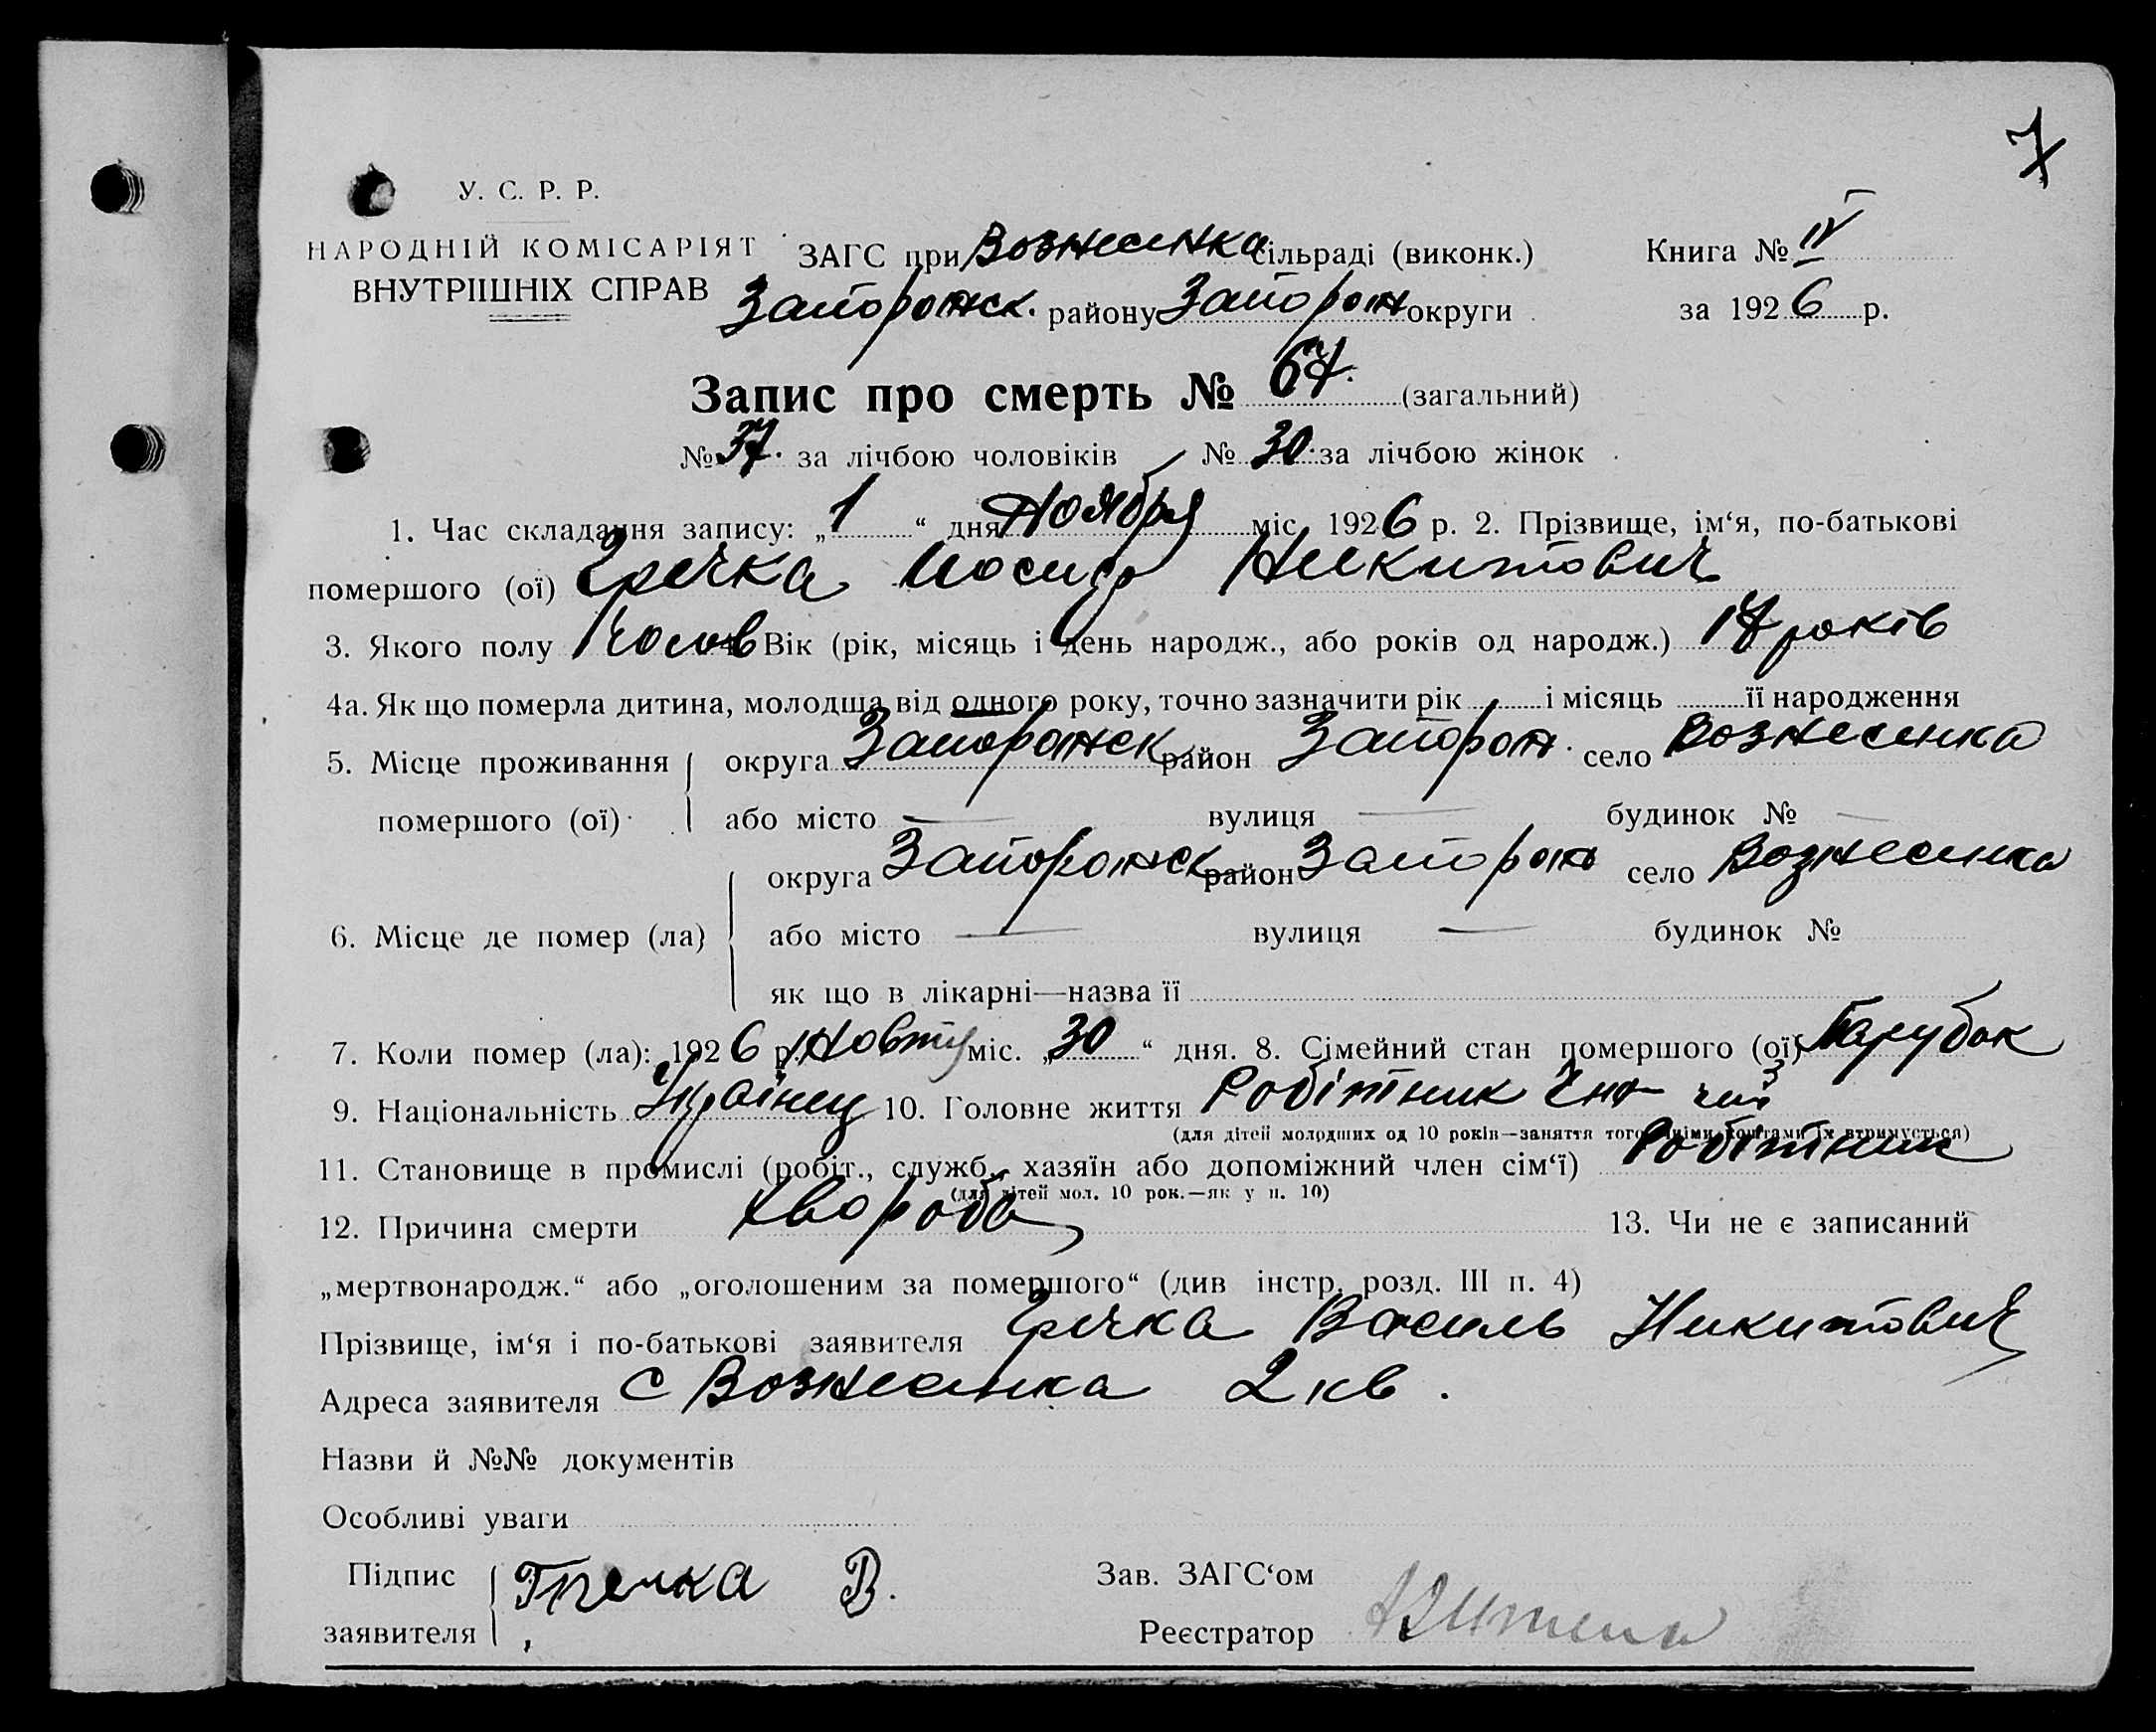 7
У. С. Р. Р.
НАРОДНІЙ КОМІСАРІЯТ
ВНУТРІШНІХ СПРАВ
ЗАГС при Вознесенка сільраді (виконк.) Книга № IV
Запорожск. району Запорож округи за 1926 р.
Запис про смерть № 67. (загальний)
№ 37. за лічбою чоловіків № 30. за лічбою жінок
1. Час складання запису: „1“ дня Ноября міс 1926 р. 2. Прізвище, ім‘я, по-батькові
помершого (ої) Гречка Иосиф Никитович
3. Якого полу Чолов Вік (рік, місяць і день народж., або років од народж.) 17 років
4а. Як що померла дитина, молодша від одного року, точно зазначити рік і місяць її народження
5. Місце проживання округа Запорожск район Запорож. село Вознесенка
помершого (ої) або місто — вулиця — будинок № —
округа Запорожск район Запорож село Вознесенка
6. Місце де помер (ла) або місто — вулиця — будинок №
як що в лікарні—назва її
7. Коли помер (ла): 1926 р. Жовту міс. „30“ дня. 8. Сімейний стан помершого (ої) Парубок
9. Національність Українец 10. Головне життя Робітник
(для дітей молодших од 10 років—заняття того, чиїми коштами їх втримується)
11. Становище в промислі (робіт., служб., хазяїн або допоміжний член сім‘ї) Робітник
(для дітей мол. 10 рок.—як у п. 10)
12. Причина смерти хвороба 13. Чи не є записаний
„мертвонародж.“ або „оголошеним за помершого“ (див інстр. розд. III п. 4)
Прізвище, ім‘я і по-батькові заявителя Гречка Василь Никитович
Адреса заявителя С Вознесенка 2 кв.
Назви й №№ документів
Особливі уваги
Підпис Гречка В. Зав. ЗАГС‘ом
заявителя Реєстратор